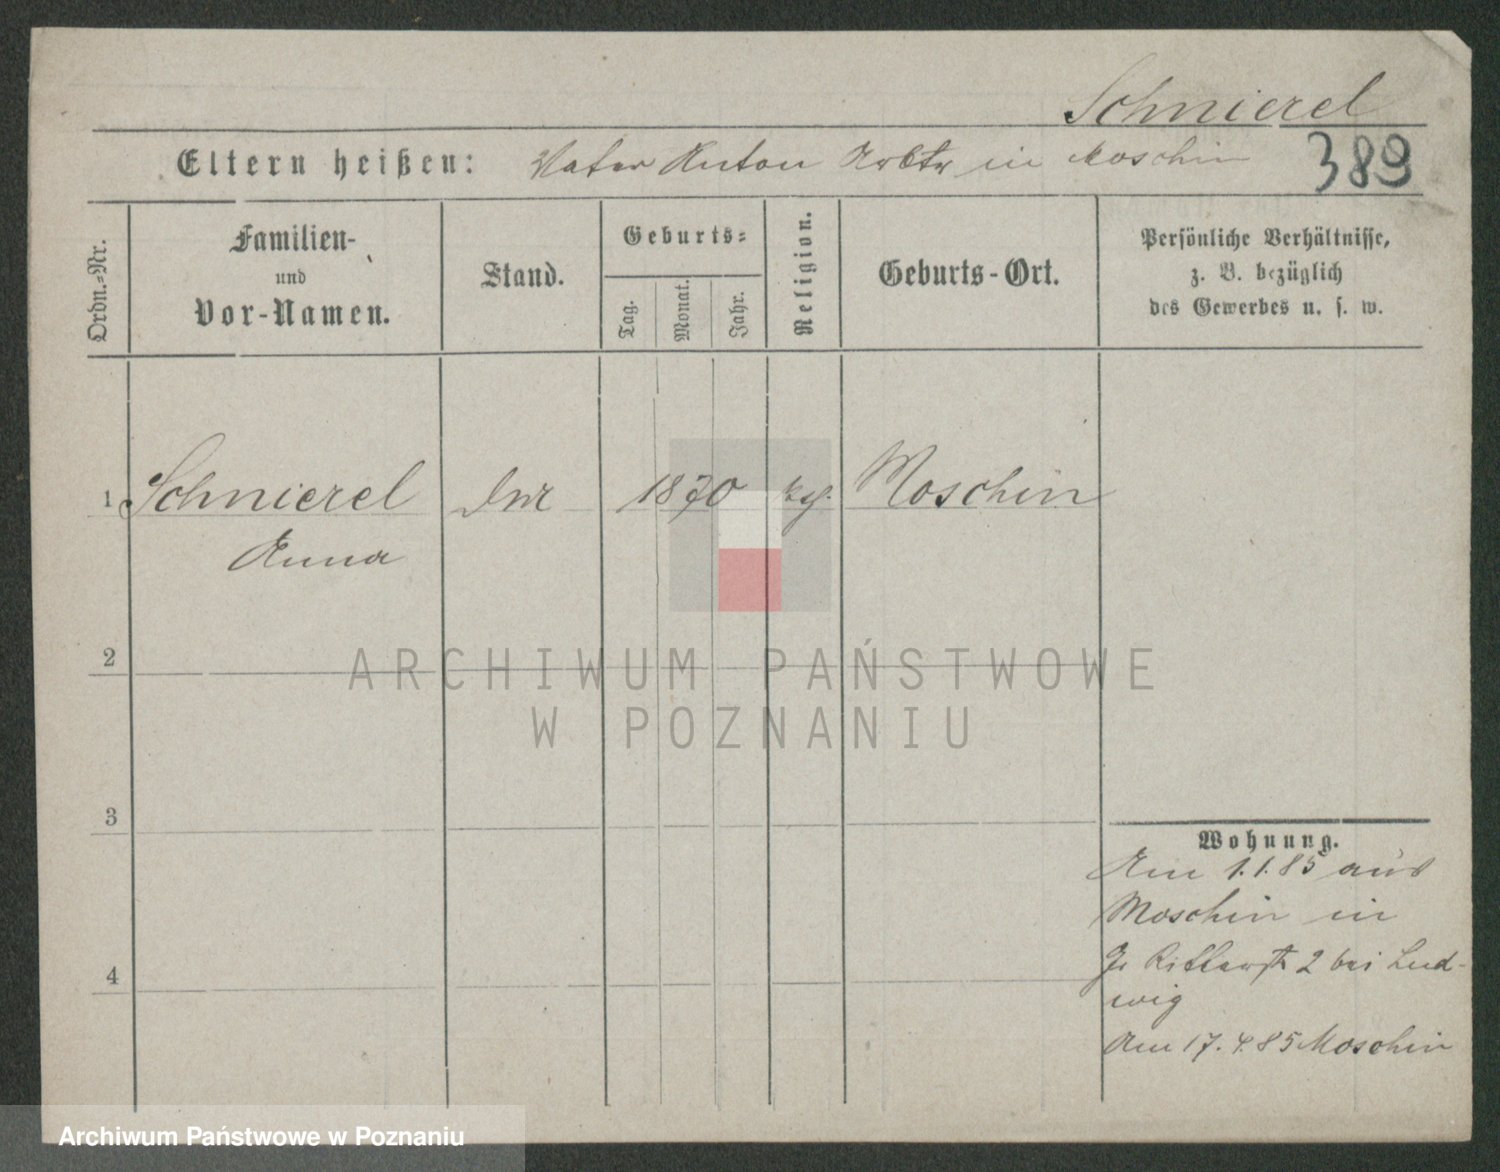 Schnierel
Eltern heißen: Vater Anton Arbtr in Moschin
389
Ordn.-Nr.
Familien-
und
Vor-Namen.
Stand.
Geburts-
Tag.
Monat.
Jahr.
Religion.
Geburts-Ort.
Persönliche Verhältnisse,
z. B. bezüglich
des Gewerbes u. s. w.
1 Schnierel 1870 Moschin
Anna
2
3
4
Wohnung.
Am 1.1.85 aus
Moschin in
Gr Ritterstr 2 bei Lud-
wig
Am 17.4.85 Moschin
ARCHIWUM PAŃSTWOWE
W POZNANIU
Archiwum Państwowe w Poznaniu